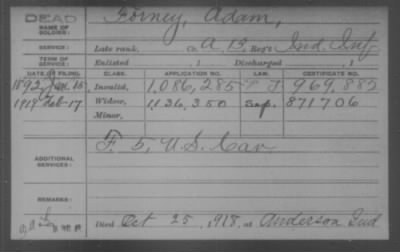 DEAD
NAME OF SOLDIER: Forney, Adam,
SERVICE: Late rank, Co. A, 13 Reg't Ind. Inf
TERM OF SERVICE: Enlisted , 1 Discharged , 1
DATE OF FILING. CLASS. APPLICATION NO. LAW. CERTIFICATE NO.
1892 Invalid, 1,086,285 969,882
1918 Widow, 1,136,350 Sep. 871706
Minor,
ADDITIONAL SERVICES: F. 5, U.S. Cav
REMARKS:
Died Oct 25, 1918, at Anderson Ind